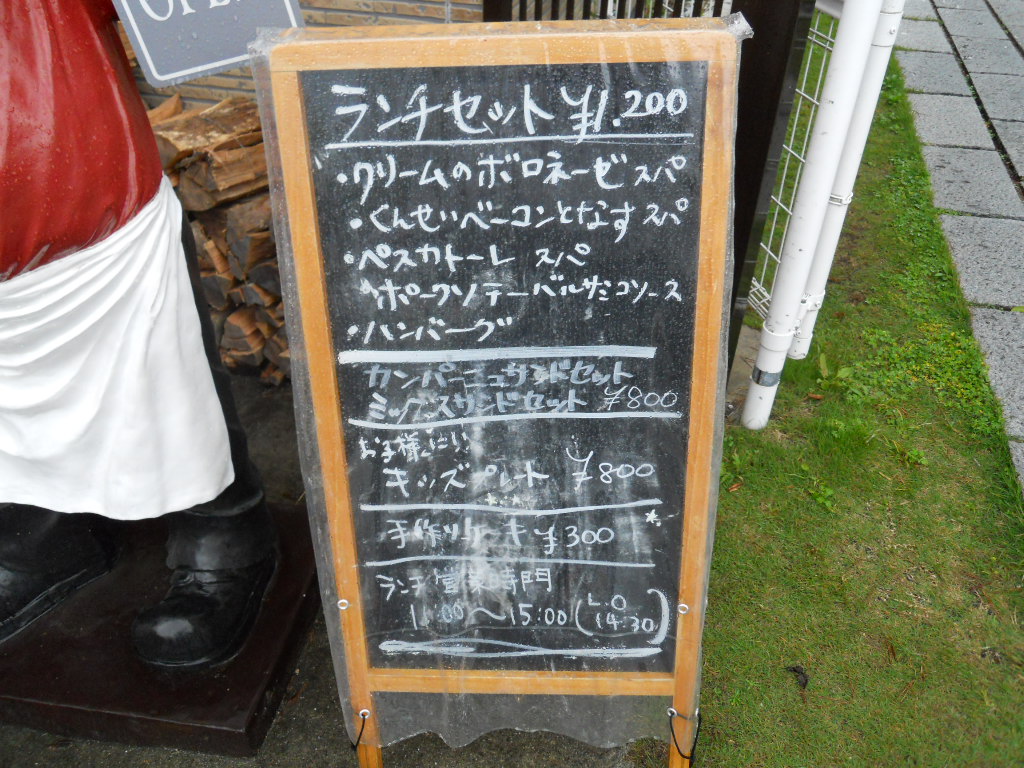 OPEN
ランチセット ¥1.200
・クリームのボロネーゼ スパ
・くんせいベーコンとなす スパ
・ペスカトーレ スパ
・ポークソテーバルサミコソース
・ハンバーグ
カンパーニュサンドセット
ミックスサンドセット ¥800
お子様に
キッズプレート ¥800
手作りケーキ ¥300
ランチ営業時間
11:00 ～15:00 (L.O
14:30)